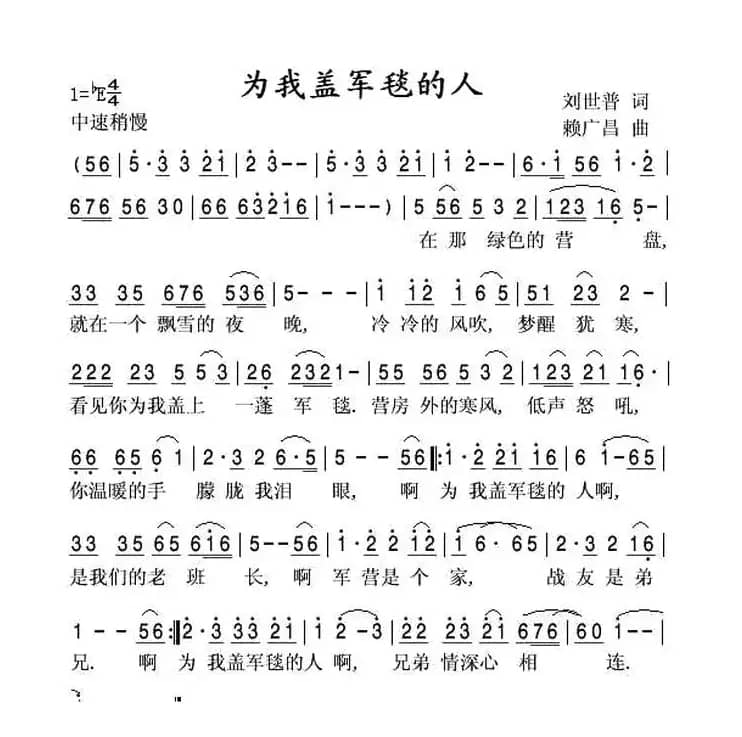 为我盖军毯的人
1=♭E4/4
刘世普 词
中速稍慢
赖广昌 曲
(56|5·3 3 21|2 3--|5·3 3 21|1 2--|6·1 56 1·2|
676 56 30|66 63216|1---)|5 56 5 3 2|123 16 5-|
在那 绿色的 营 盘,
33 35 676 536|5--|1 12 1 6 5|51 23 2-|
就在一个 飘雪的 夜 晚, 冷 冷的 风吹, 梦醒 犹 寒,
222 23 5 5 3|26 2321-|55 56 5 3 2|123 21 16·|
看见你为我盖上 一蓬 军 毯. 营房 外的寒风, 低声 怒 吼,
66 65 6 1|2·3 2 6·5|5--56:1·2 21 16|61-65|
你温暖的手 朦胧 我泪 眼, 啊 为 我盖军毯的 人啊,
33 35 65 616|5--56|1·2 2 12|1 6·65|3 2 2 16|
是我们的老 班 长, 啊 军 营是 个 家, 战 友 是 弟
1--56:2·3 33 21|1 2-3|22 23 21|676|60 1--|
兄. 啊 为 我盖军毯的人 啊, 兄弟 情深心 相 连.